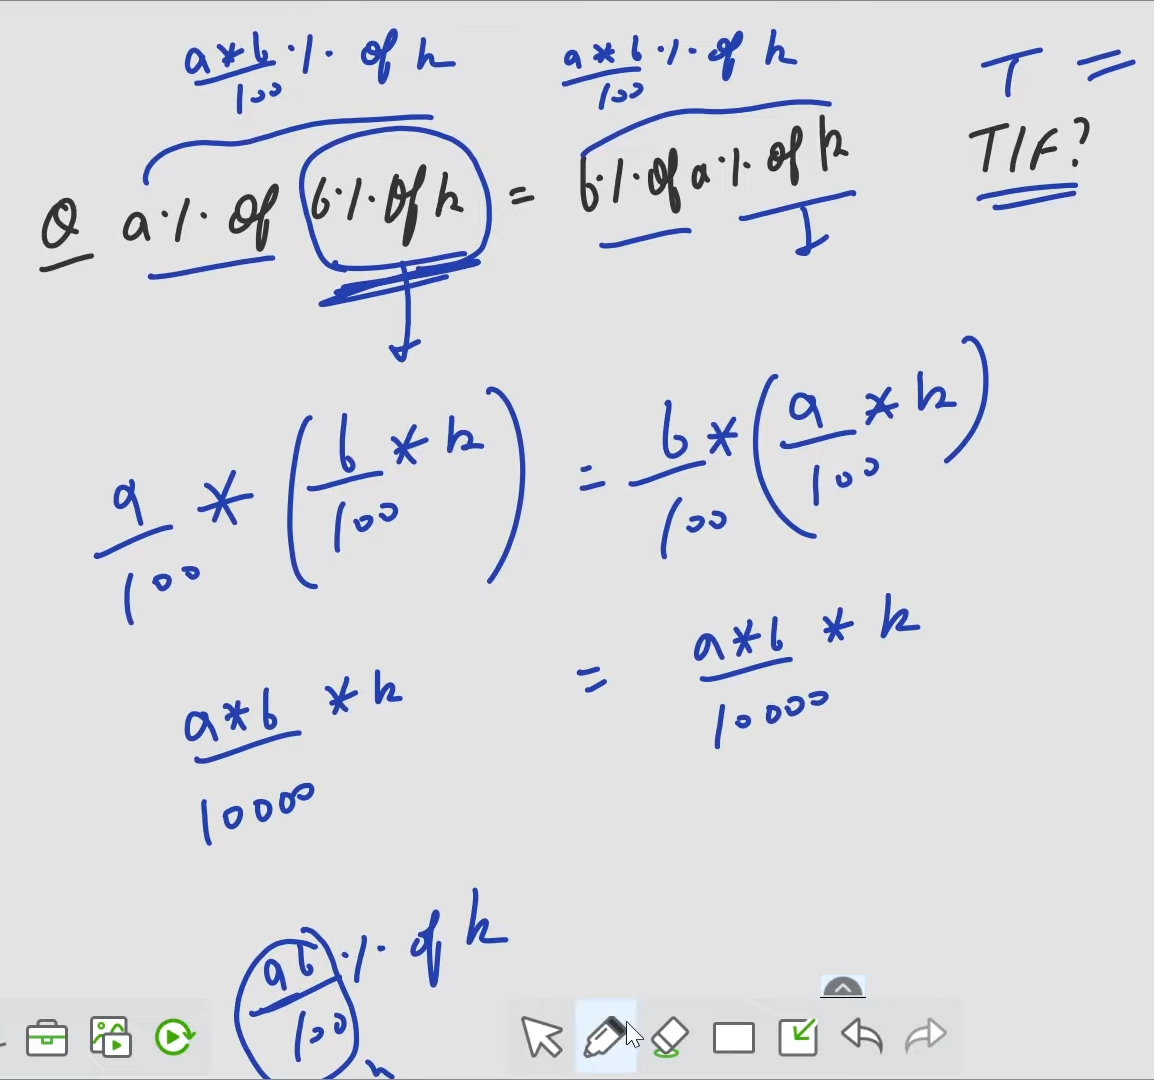 a*b/100 % of k    a*b/100 % of k    T =
Q a% of b% of k = b% of a% of k    T/F?
a/100 * (b/100 * k) = b/100 * (a/100 * k)
a*b/10000 * k = a*b/10000 * k
ab/100 % of k